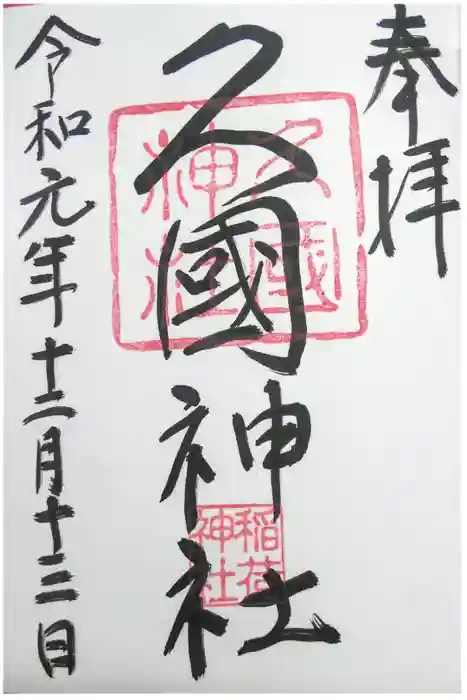 奉拝
久國神社
久國神社
稲荷神社
令和元年十二月十三日